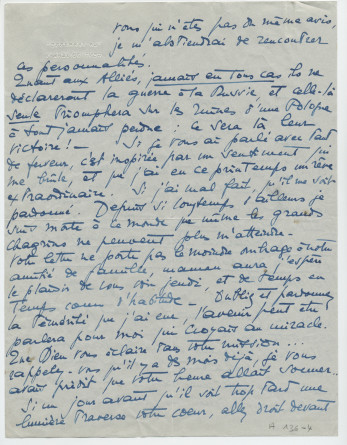 vous qui n'êtes pas du même avis,
je m'abstiendrai de rencontrer
ces personnalités.
Quant aux Alliés, jamais en tous cas ils ne
déclareront la guerre à la Russie et celle-là
seule triomphera sur les ruines d'une Pologne
à tout jamais perdue : ce sera là leur
victoire ! – Si je vous ai parlé avec tant
de ferveur, c'est inspirée par un sentiment qui
me brûle, et j'ai en ce printemps un rêve
extraordinaire. Si j'ai mal fait, qu'il me soit
pardonné. Depuis si longtemps d'ailleurs je
suis morte à le monde que même les grands
chagrins ne peuvent plus m'atteindre.
Votre lettre ne porte pas le moindre ombrage à notre
amitié de famille, maman aura, j'espère
le plaisir de vous voir jeudi, et de temps en
temps comme d'habitude. – Oubliez et pardonnez
la témérité que j'ai eue, l'avenir peut être
parlera pour moi qui croyais au miracle.
Que Dieu vous éclaire dans votre mission...
rappelez-vous qu'il y a des mois déjà, je vous
avais prédit que votre heure allait sonner..
Si un jour avant qu'il soit trop tard une
lumière traverse votre coeur, allez droit devant
A 136-4